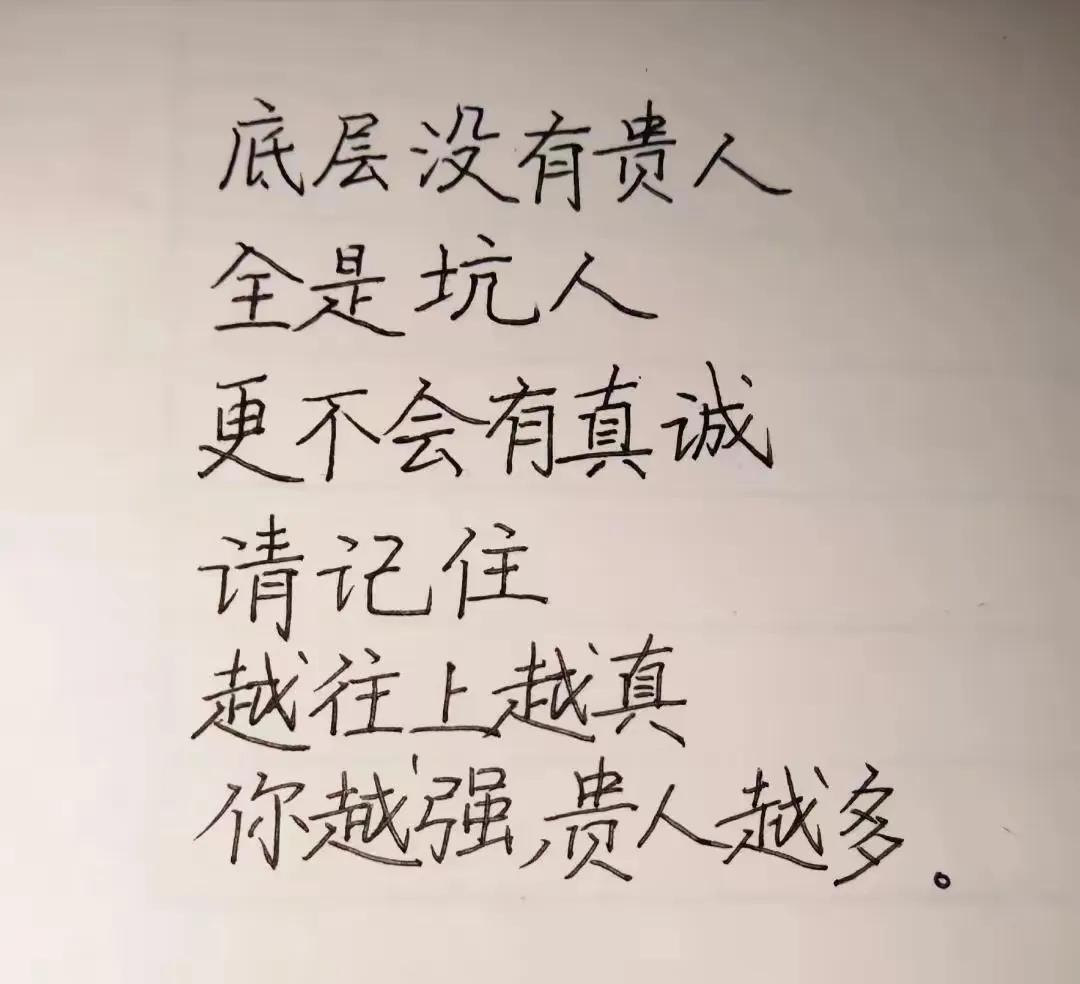 底层没有贵人
全是坑人
更不会有真诚
请记住
越往上越真
你越强,贵人越多。